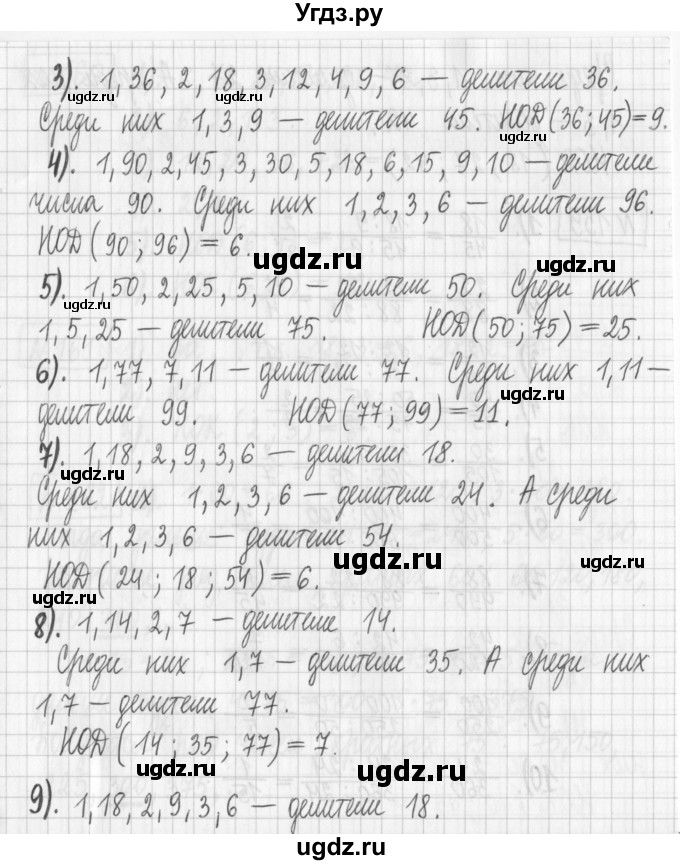 Угдз.ру
3). 1, 36, 2, 18, 3, 12, 4, 9, 6 — делители 36.
ugdz.ru
Среди них 1, 3, 9 — делители 45. НОД(36; 45)=9.
ugdz.ru
4). 1, 90, 2, 45, 3, 30, 5, 18, 6, 15, 9, 10 — делители
ugdz.ru
числа 90. Среди них 1, 2, 3, 6 — делители 96.
НОД(90; 96) = 6.
ugdz.ru
ugdz.ru
5). 1, 50, 2, 25, 5, 10 — делители 50. Среди них
ugdz.ru
1, 5, 25 — делители 75. НОД(50; 75) = 25.
6). 1, 77, 7, 11 — делители 77. Среди них 1, 11 —
ugdz.ru
делители 99. НОД(77; 99) = 11.
7). 1, 18, 2, 9, 3, 6 — делители 18.
ugdz.ru
Среди них 1, 2, 3, 6 — делители 24. А среди
них 1, 2, 3, 6 — делители 54.
ugdz.ru
НОД(24; 18; 54) = 6.
ugdz.ru
ugdz.ru
8). 1, 14, 2, 7 — делители 14.
Среди них 1, 7 — делители 35. А среди них
1, 7 — делители 77.
НОД(14; 35; 77) = 7.
ugdz.ru
ugdz.ru
9). 1, 18, 2, 9, 3, 6 — делители 18.
ugdz.ru